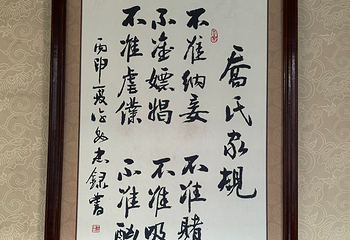 喬氏家規
不准納妾 不准賭
不准嫖娼 不准吸
不准虐僕 不准酗
丙申夏 忠錄書